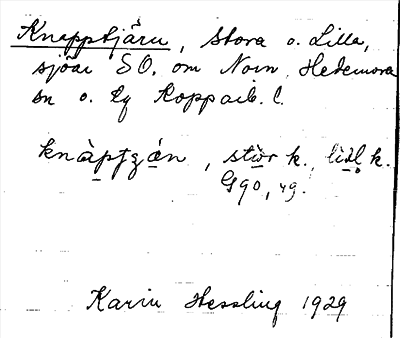 Knapptjärn, Stora o. Lilla,
sjöar SO. om Norn, Hedemora
sn o. lg Kopparb. l.
stòr k., lìtl k.
G90, 49.
Karin Hessling 1929